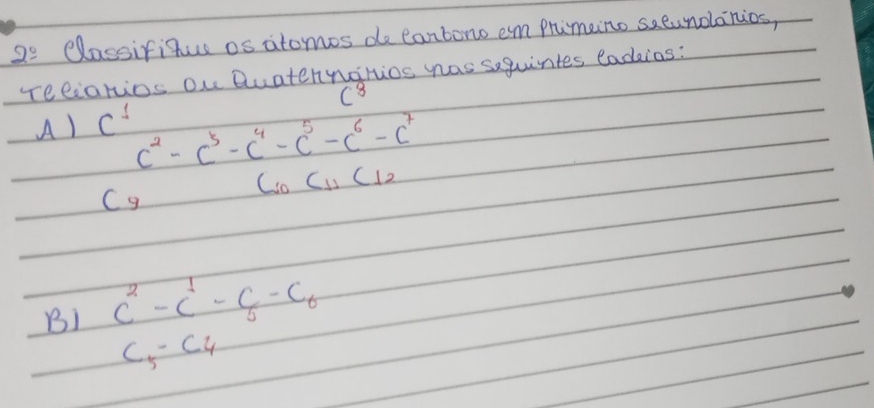 2º Classifique os átomos de carbono em Primeiro secundários,
Terciarios ou Quaternários nas seguintes cadeias:
C⁸
A) C¹
C² - C³ - C⁴ - C⁵ - C⁶ - C⁷
C₉ C₁₀ C₁₁ C₁₂
B) C² - C¹ - C₅ - C₆
C₅ - C₄